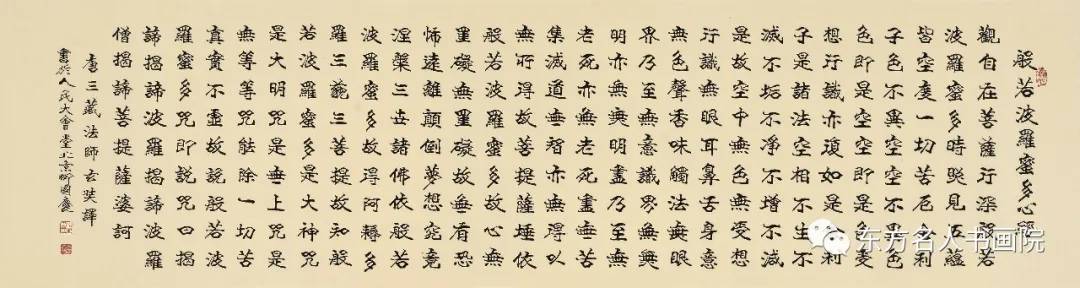 般若波羅蜜多心經
觀自在菩薩行深般若
波羅蜜多時照見五蘊
皆空度一切苦厄舍利
子色不異空空不異色
色即是空空即是色受
想行識亦復如是舍利
子是諸法空相不生不
滅不垢不淨不增不減
是故空中無色無受想
行識無眼耳鼻舌身意
無色聲香味觸法無眼
界乃至無意識界無無
明亦無無明盡乃至無
老死亦無老死盡無苦
集滅道無智亦無得以
無所得故菩提薩埵依
般若波羅蜜多故心無
罣礙無罣礙故無有恐
怖遠離顛倒夢想究竟
涅槃三世諸佛依般若
波羅蜜多故得阿耨多
羅三藐三菩提故知般
若波羅蜜多是大神咒
是大明咒是無上咒是
無等等咒能除一切苦
真實不虛故說般若波
羅蜜多咒即說咒曰揭
諦揭諦波羅揭諦波羅
僧揭諦菩提薩婆訶
唐三藏法師玄奘譯
書於人民大會堂北京國慶
东方名人书画院